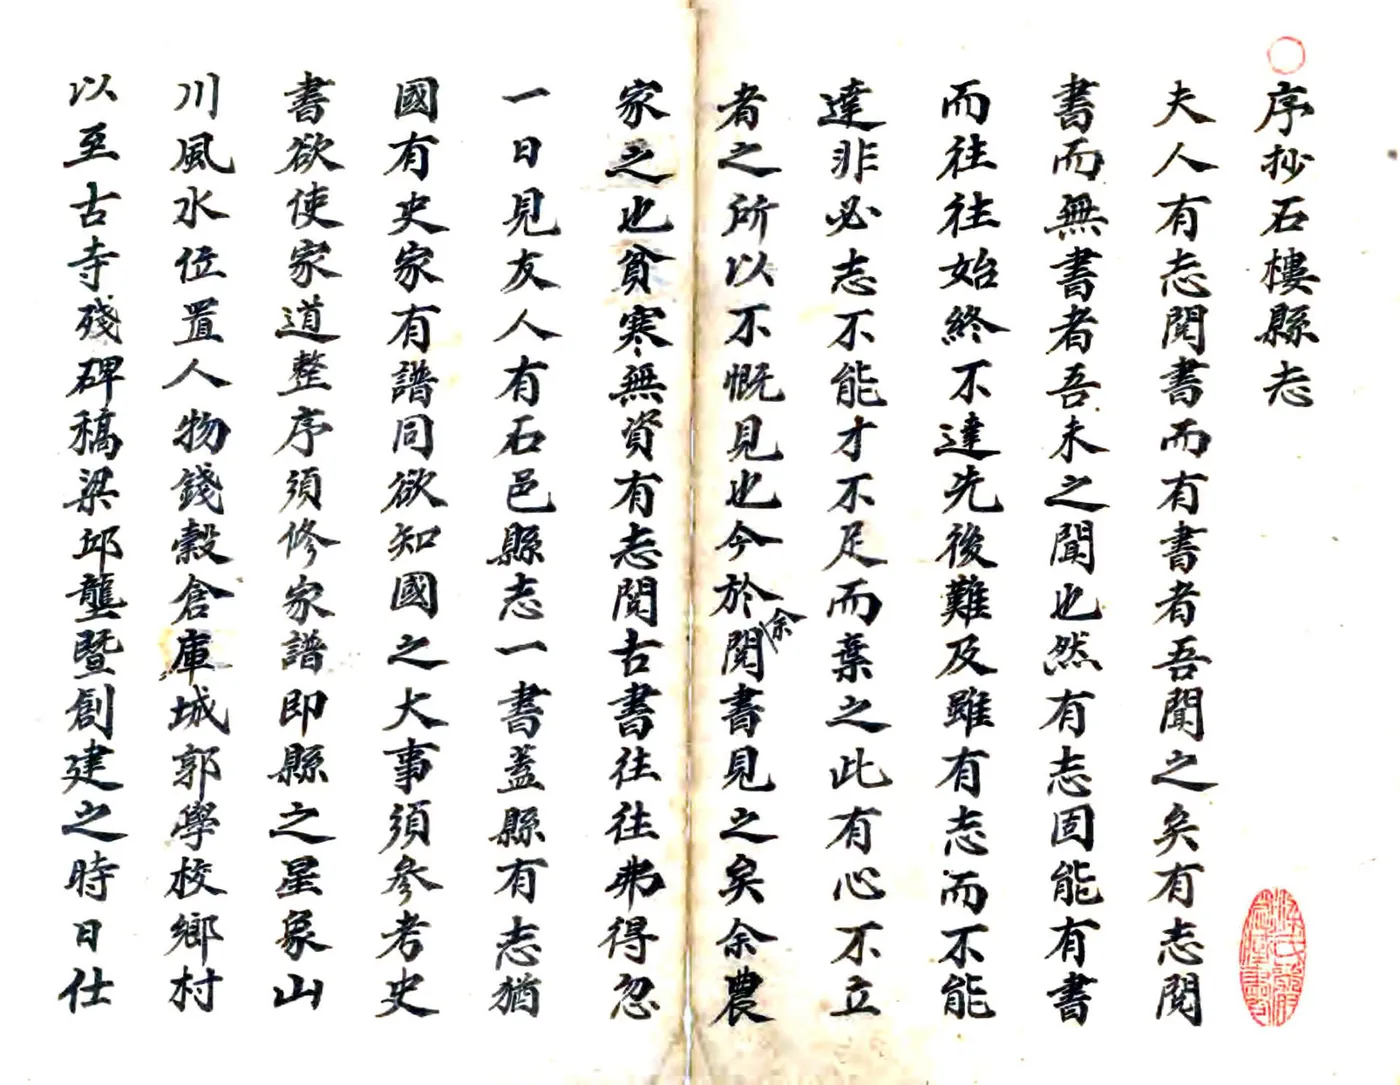 序抄石樓縣志
夫人有志閱書而有書者吾聞之矣有志閱
書而無書者吾未之聞也然有志固能有書
而往往始終不達先後難及雖有志而不能
達非必志不能才不足而棄之此有心不立
者之所以不慨見也今於余閱書見之矣余農
家之也貧寒無資有志閱古書往往弗得忽
一日見友人有石邑縣志一書蓋縣有志猶
國有史家有譜同欲知國之大事須參考史
書欲使家道整序須修家譜即縣之星象山
川風水位置人物錢穀倉庫城郭學校鄉村
以至古寺殘碑稿梁邱壟暨創建之時日仕